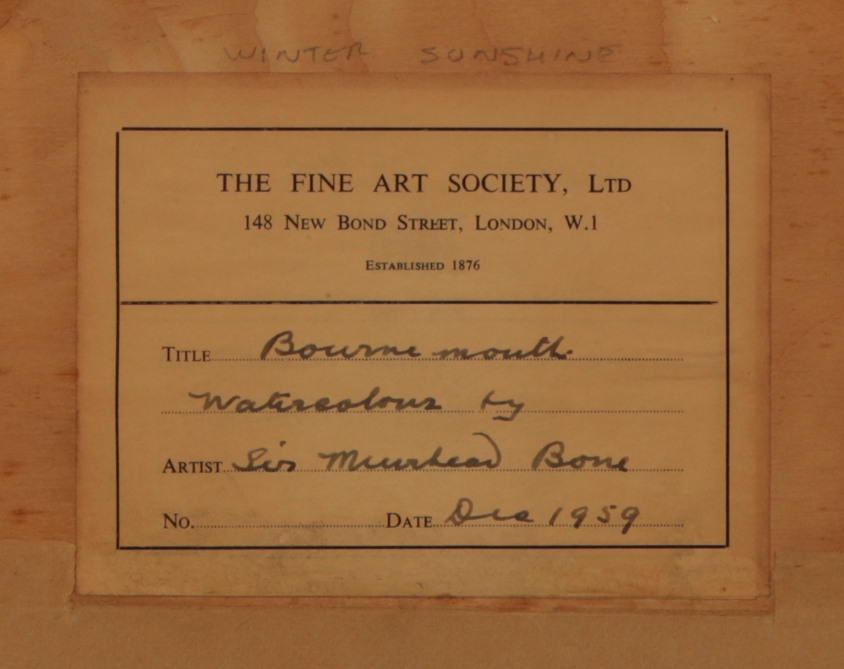 WINTER SUNSHINE
THE FINE ART SOCIETY, LTD
148 NEW BOND STREET, LONDON, W.1
ESTABLISHED 1876
TITLE Bournemouth
Watercolour by
ARTIST Sir Muirhead Bone
No. DATE Dec 1959